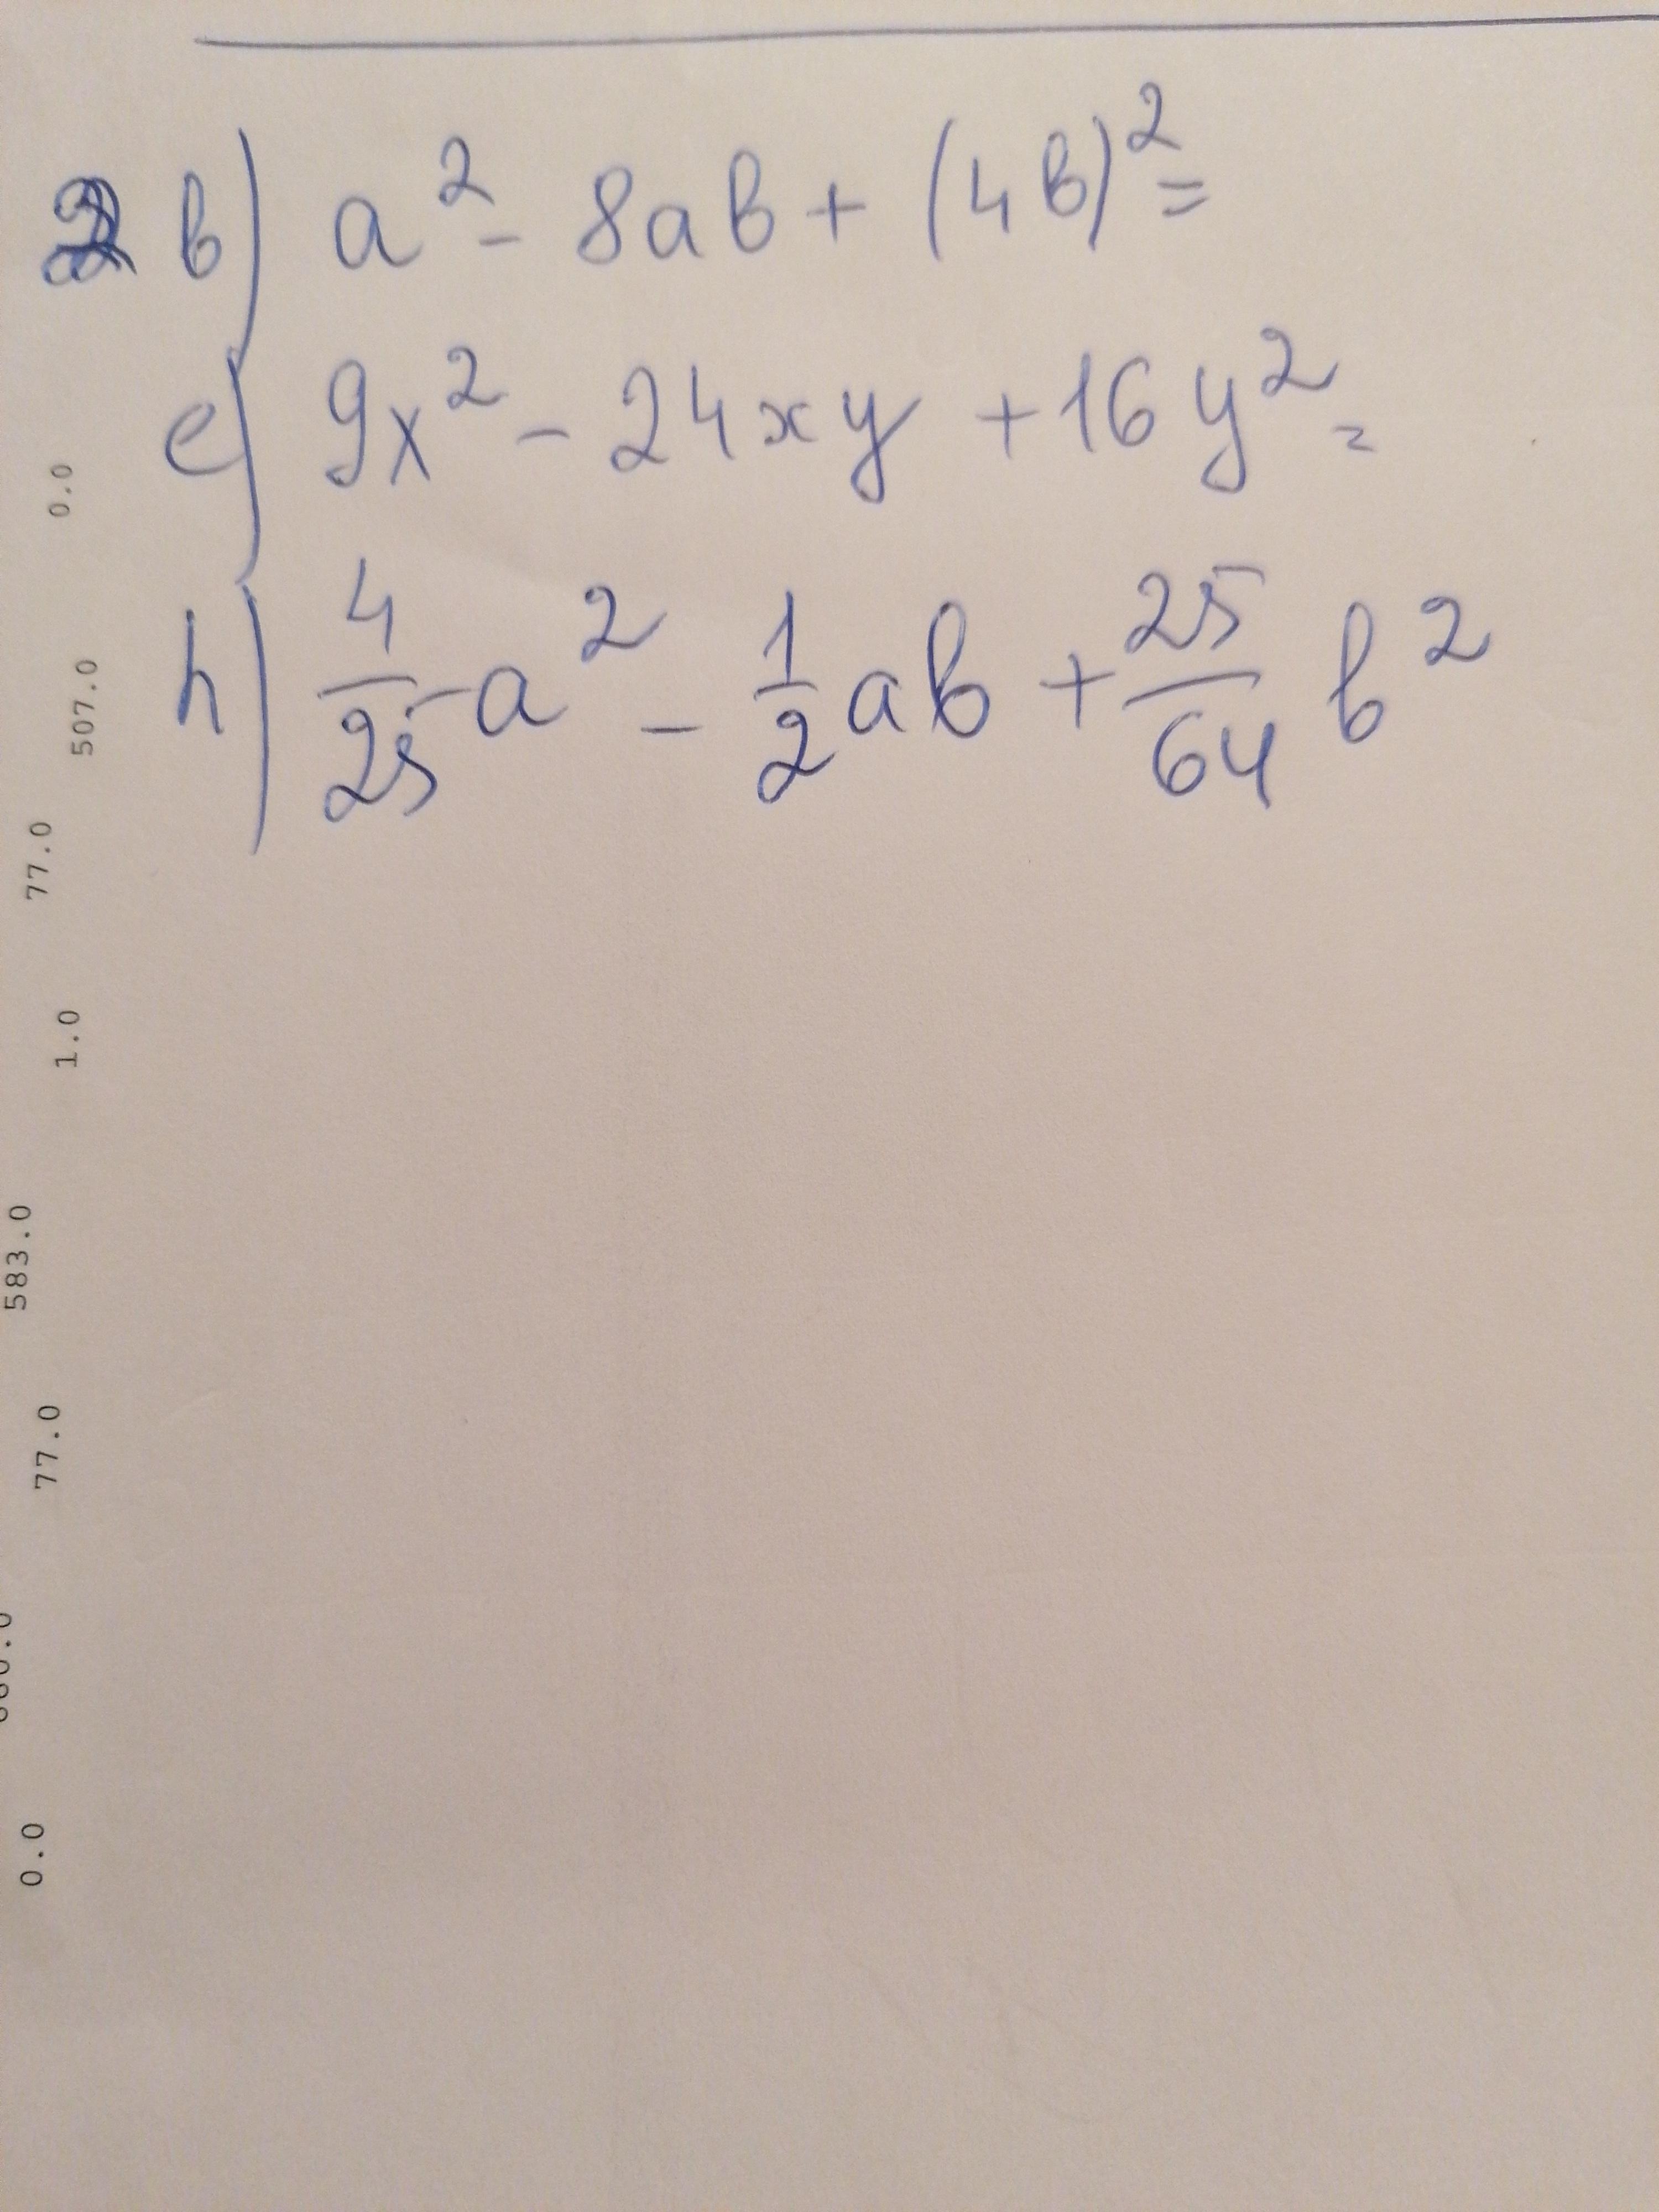 2 b) a² - 8ab + (4b)² =
e) 9x² - 24xy + 16y² =
h) 4/25 a² - 1/2 ab + 25/64 b²
0.0
507.0
77.0
1.0
583.0
77.0
0.0